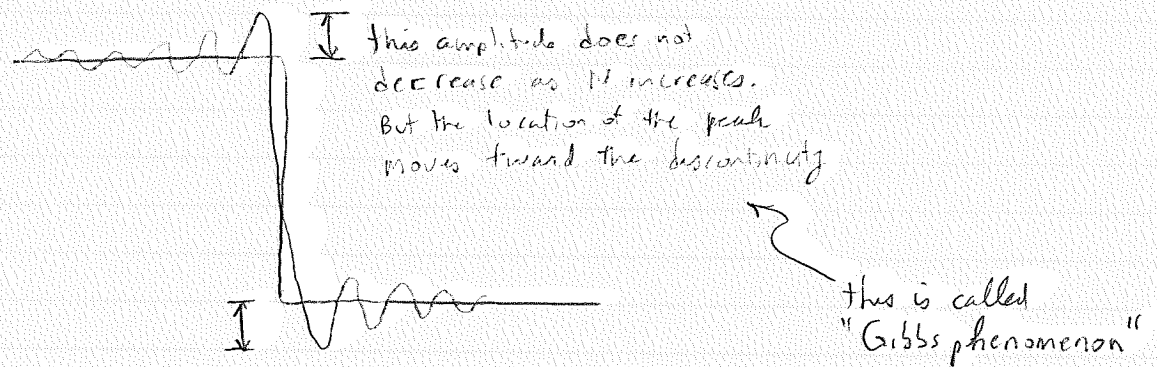 this amplitude does not
decrease as N increases.
But the location of the peak
moves toward the discontinuity
this is called
"Gibbs phenomenon"